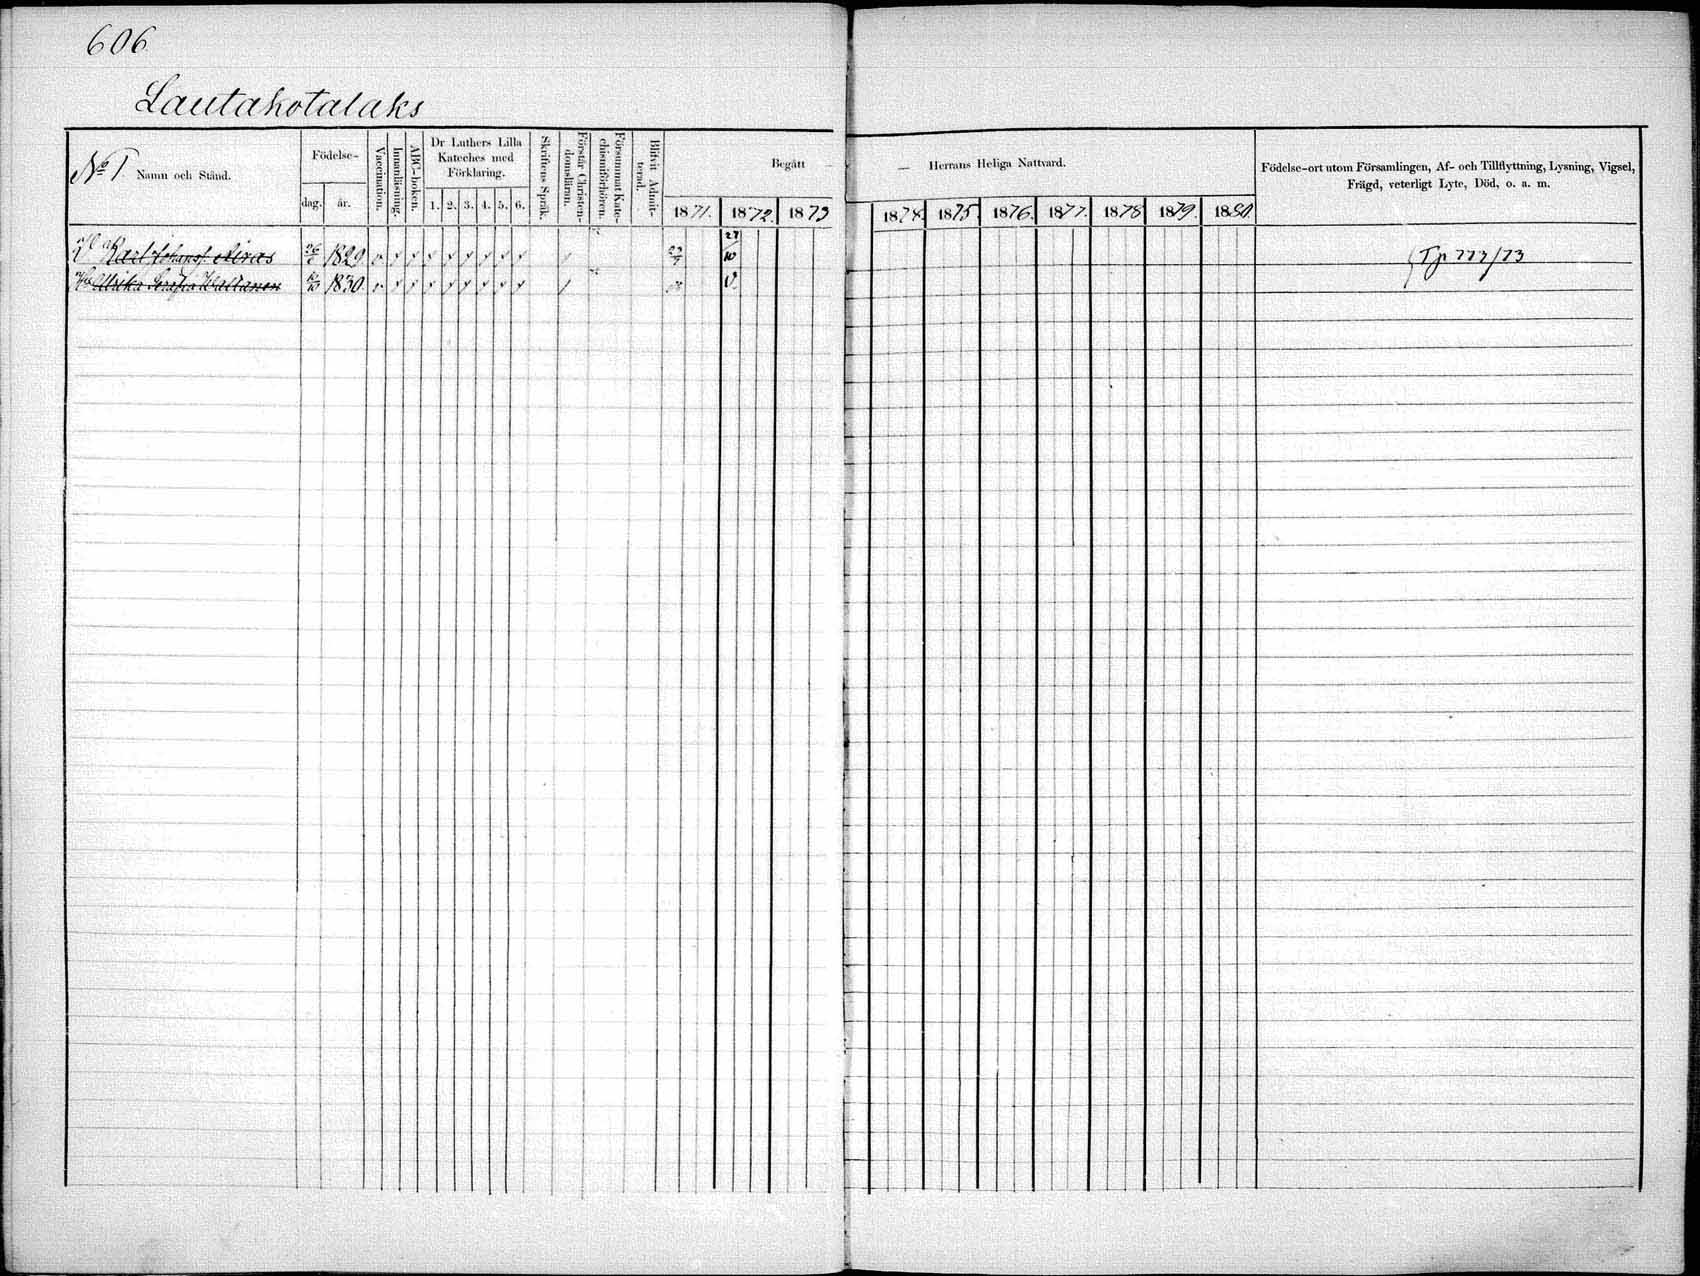 606
Lautakotalaks
No 1 Namn och Stånd.
Födelse-
dag. år.
Vaccination.
Innanläsning.
ABC-boken.
Dr Luthers Lilla
Kateches med
Förklaring.
1. 2. 3. 4. 5. 6.
Skriftens Språk.
Förstår Christen-
domsläran.
Försummat Kate-
chismiförhören.
Blifvit Admit-
terad.
Begått —
1871. 1872. 1873
— Herrans Heliga Nattvard.
1874. 1875. 1876. 1877. 1878 1879. 1880.
Födelse-ort utom Församlingen, Af- och Tillflyttning, Lysning, Vigsel,
Frägd, veterligt Lyte, Död, o. a. m.
Karl Johansf. Airas 1829
Ulrika Serafia Waltanen 1830